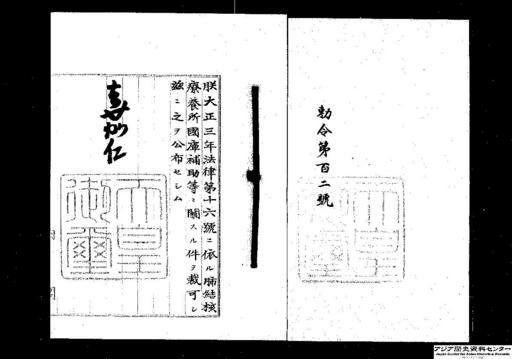 勅令第百二號
朕大正三年法律第十六號ニ依ル肺結核
療養所國庫補助等ニ關スル件ヲ裁可シ
茲ニ之ヲ公布セシム
嘉仁
天皇
御璽
アジア歴史資料センター
Japan Center for Asian Historical Records